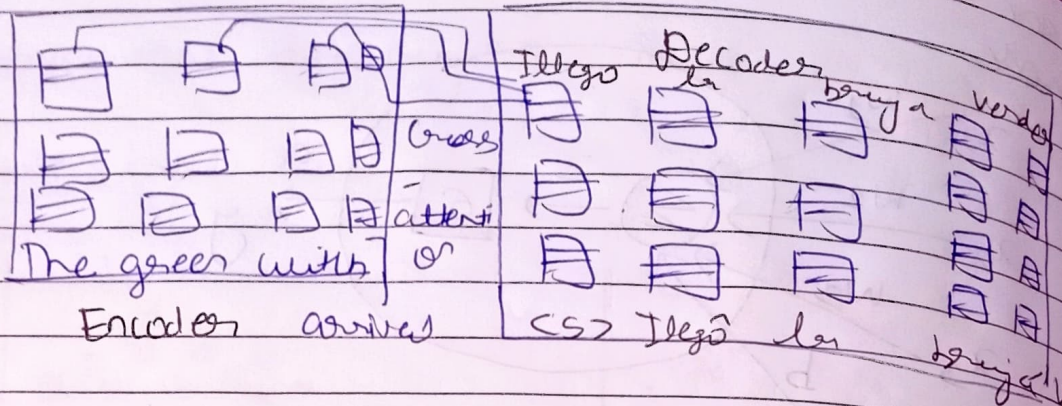 Decoder
Illego la bruja verde
Cross
- attenti
on
The green witch
Encoder arrives
<S> Ilegô la bruja